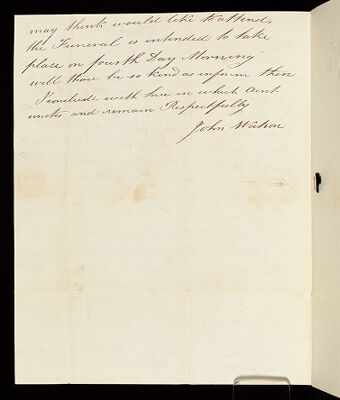 may think would like to attend,
the Funeral is intended to take
place on fourth Day Morning
will thou be so kind as inform them
I conclude with love in which Aunt
unites and remain Respectfully
John Watson